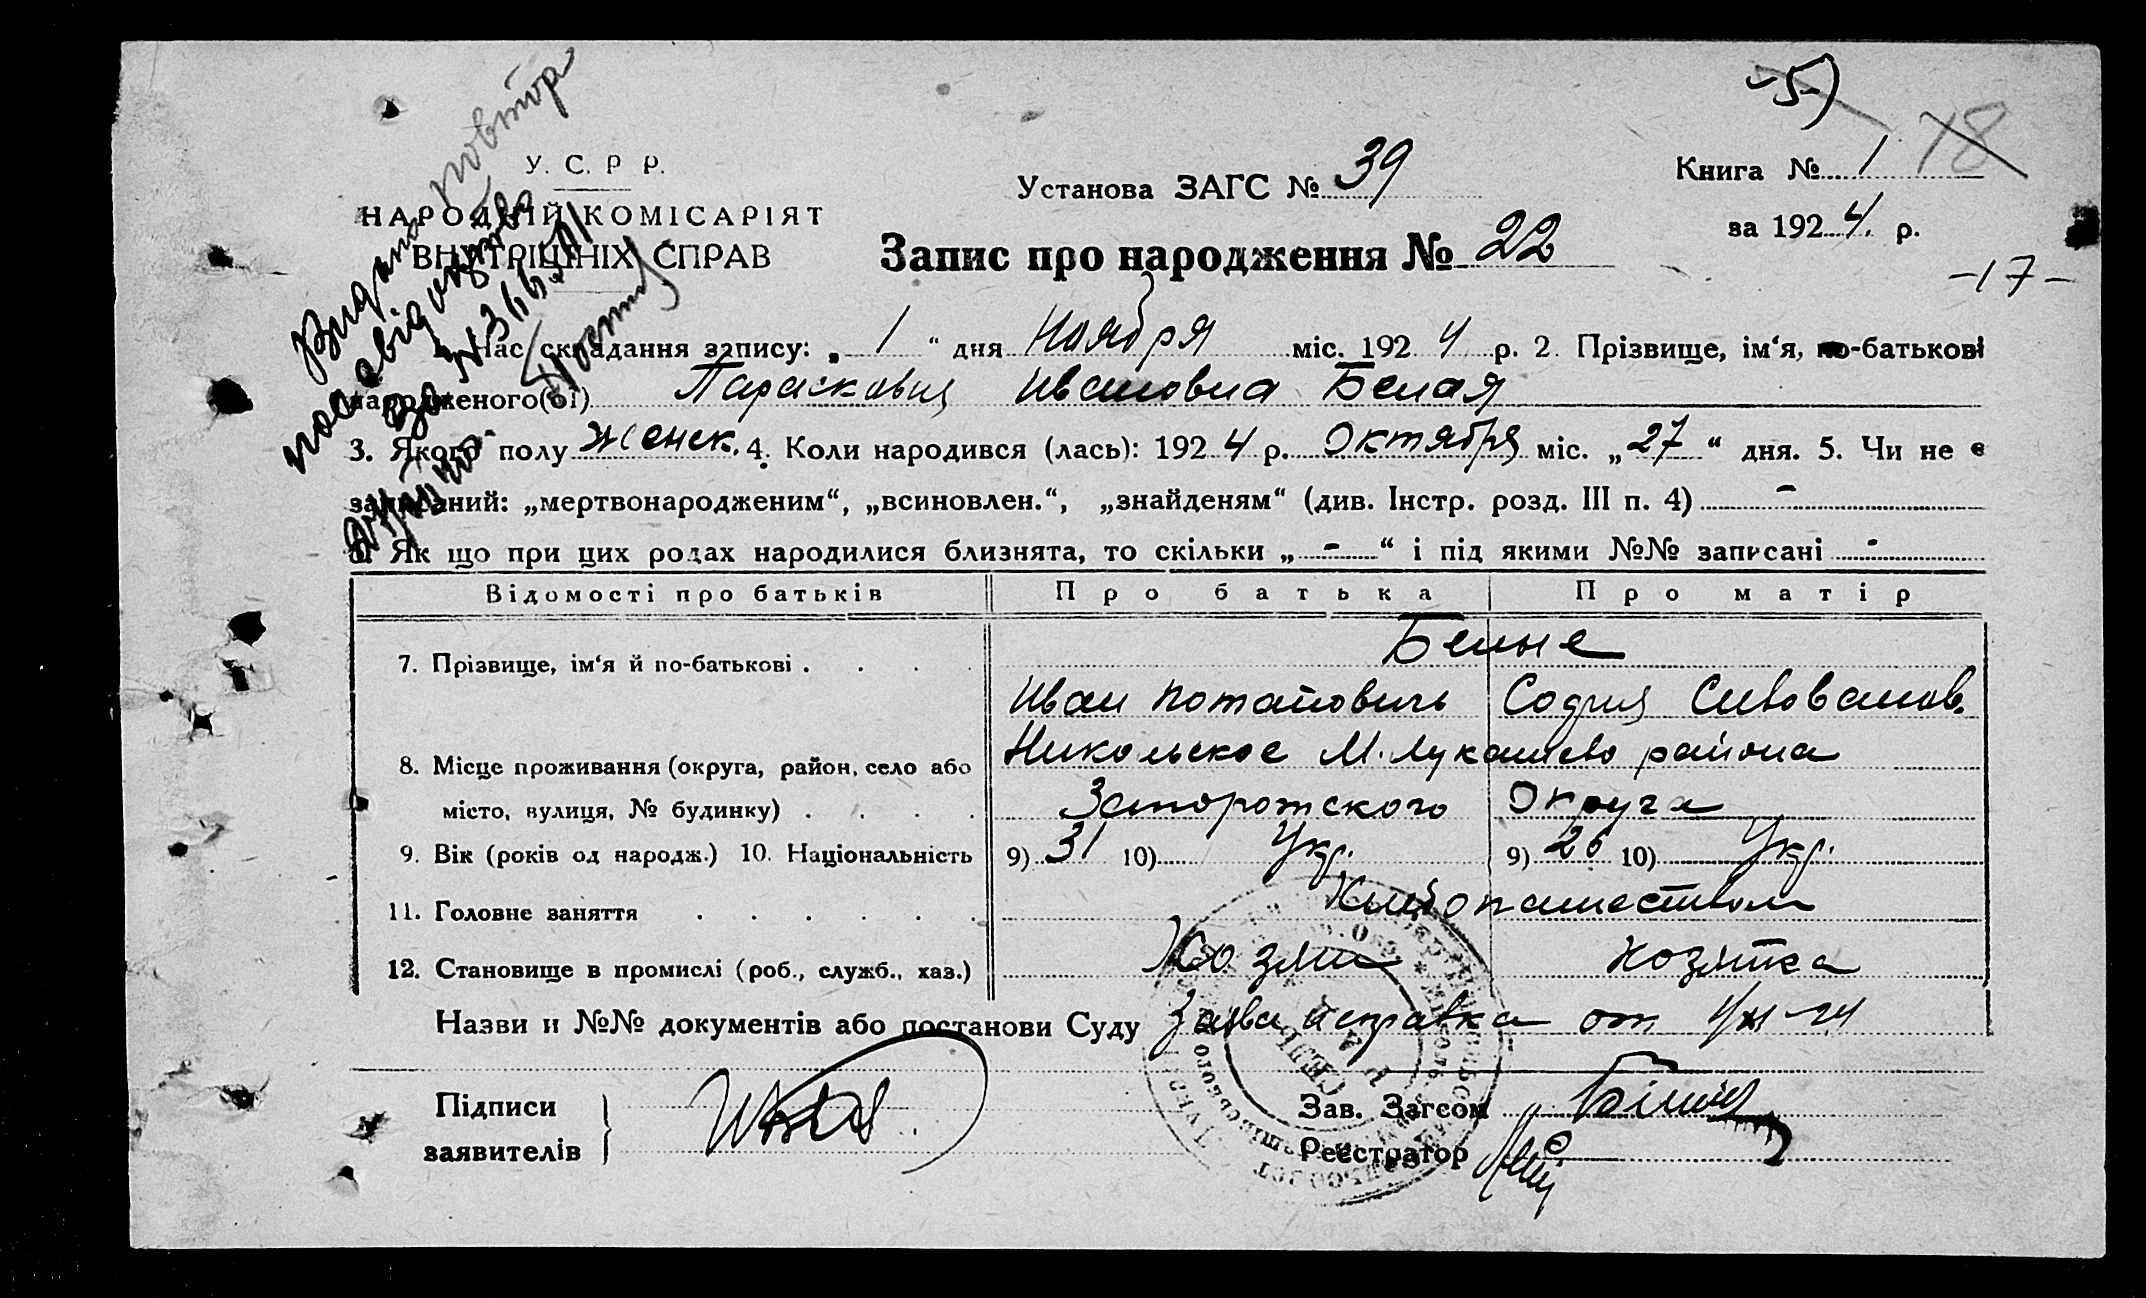 -5-)
18
У. С. Р Р.
НАРОДНІЙ КОМІСАРІЯТ
ВНУТРІШНІХ СПРАВ
Установа ЗАГС № 39
Книга № 1
за 1924 р.
Запис про народження № 22
-17-
Видана повтор
Час складання запису: „ 1 “ дня Ноября міс. 1924 р. 2. Прізвище, ім‘я, по-батькові
народженого(ої) Парасковия Ивановна Белая
3. Якого полу женск. 4. Коли народився (лась): 1924 р. Октября міс. „27“ дня. 5. Чи не є
записаний: „мертвонародженим“, „всиновлен.“, „знайденям“ (див. Інстр. розд. III п. 4) -
6. Як що при цих родах народилися близнята, то скільки „ - “ і під якими №№ записані -
Відомості про батьків Про батька Про матір
Белые
7. Прізвище, ім‘я й по-батькові . . . .
Иван Потапович София Силованов.
Никольское М. Лукашево района
8. Місце проживання (округа, район, село або
місто, вулиця, № будинку) . . . . Запорожского Округа
9. Вік (років од народж.) 10. Національність 9) 31 10) Укр. 9) 26 10) Укр.
Хлибопашеством
11. Головне заняття . . . . . .
12. Становище в промислі (роб., служб., хаз.) Хозяин хозяйка
Назви и №№ документів або постанови Суду справка от
Підписи
заявителів
Зав. Загсом
Реєстратор